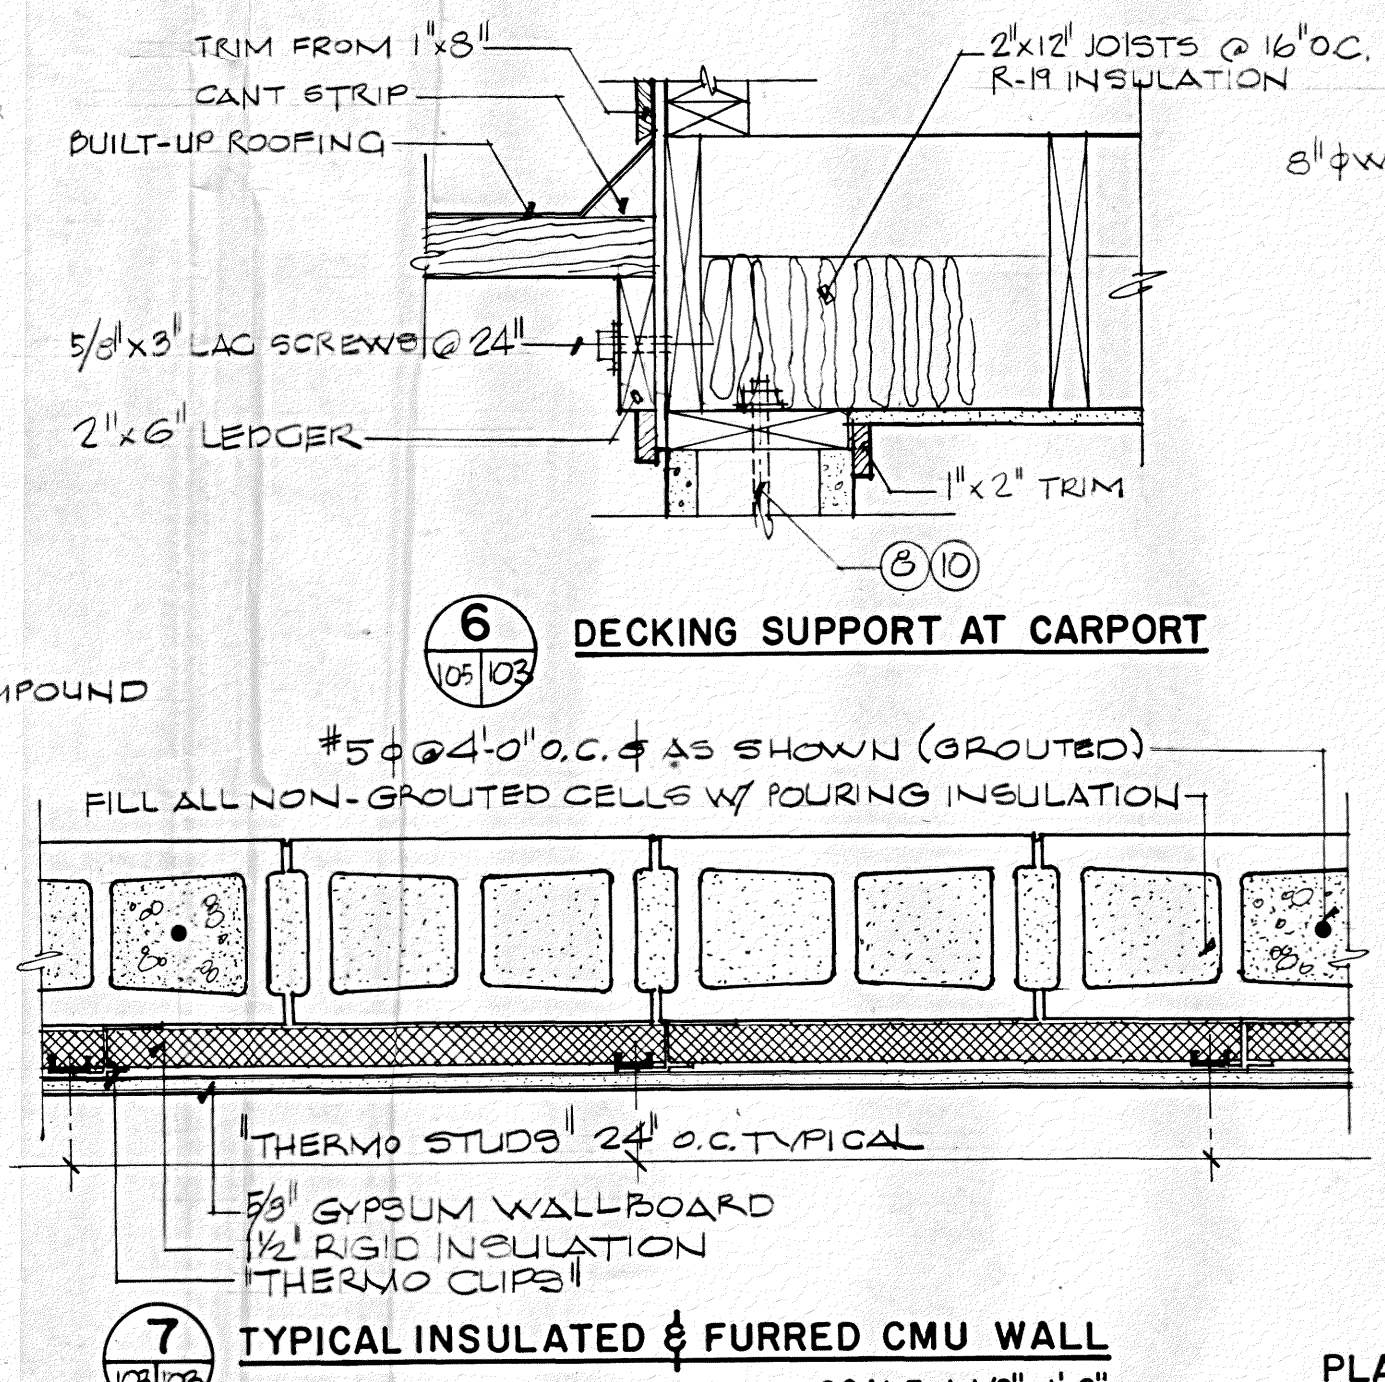 TRIM FROM 1"x8"
CANT STRIP
BUILT-UP ROOFING
2"x12" JOISTS @ 16" O.C.
R-19 INSULATION
8" ϕ W
5/8" x 3" LAG SCREWS @ 24"
2"x6" LEDGER
1"x2" TRIM
8 10
6
105 103
DECKING SUPPORT AT CARPORT
MPOUND
#5 ϕ @ 4'-0" O.C. & AS SHOWN (GROUTED)
FILL ALL NON-GROUTED CELLS W/ POURING INSULATION
"THERMO STUDS" 24" O.C. TYPICAL
5/8" GYPSUM WALLBOARD
1½" RIGID INSULATION
"THERMO CLIPS"
7
103 103
TYPICAL INSULATED & FURRED CMU WALL
PLA